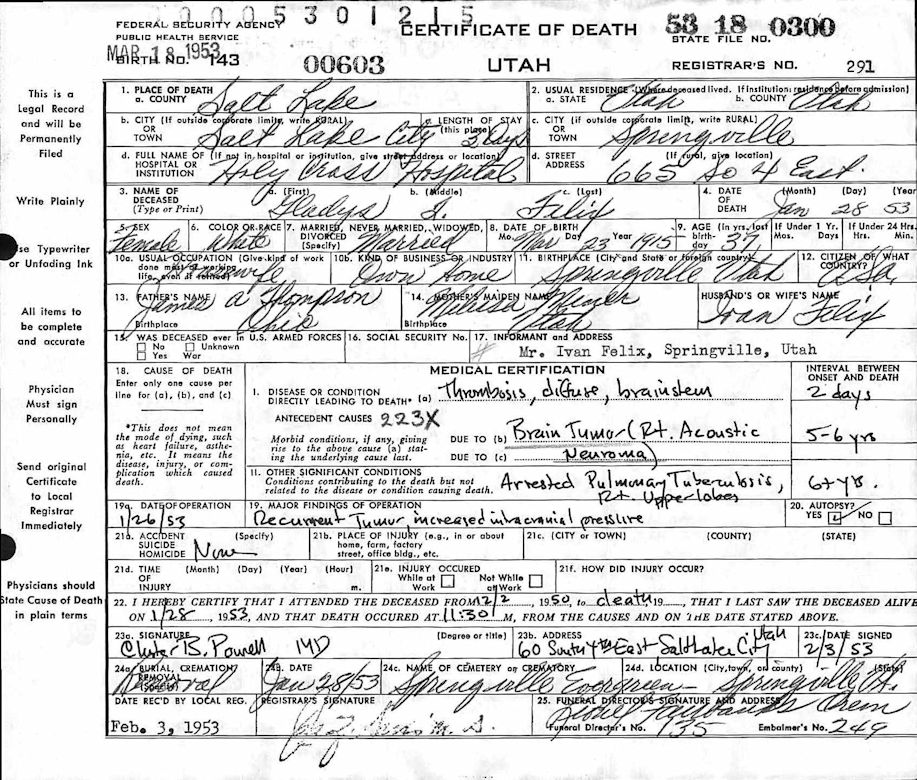 0 0 0 5 3 0 1 2 1 5
FEDERAL SECURITY AGENCY
PUBLIC HEALTH SERVICE
CERTIFICATE OF DEATH
53 18 0300
STATE FILE NO.
MAR 18 1953
BIRTH NO. 143
00603
UTAH
REGISTRAR'S NO. 291
This is a
Legal Record
and will be
Permanently
Filed
Write Plainly
Use Typewriter
or Unfading Ink
All items to
be complete
and accurate
Physician
Must sign
Personally
Send original
Certificate
to Local
Registrar
Immediately
Physicians should
State Cause of Death
in plain terms
1. PLACE OF DEATH
a. COUNTY Salt Lake
2. USUAL RESIDENCE (Where deceased lived. If institution: residence before admission)
a. STATE Utah b. COUNTY Utah
b. CITY (If outside corporate limits, write RURAL)
OR
TOWN Salt Lake City
c. LENGTH OF STAY
(this place) 2 days
c. CITY (If outside corporate limit, write RURAL)
OR
TOWN Springville
d. FULL NAME OF (If not in hospital or institution, give street address or location)
HOSPITAL OR
INSTITUTION Holy Cross Hospital
d. STREET (If rural, give location)
ADDRESS 665 So 4 East.
3. NAME OF
DECEASED
(Type or Print)
a. (First) b. (Middle) c. (Last)
Gladys T. Felix
4. DATE
OF
DEATH
(Month) (Day) (Year
Jan 28 53
5. SEX
Female
6. COLOR OR RACE
White
7. MARRIED, NEVER MARRIED, WIDOWED,
DIVORCED
(Specify) Married
8. DATE OF BIRTH
Mo. Mar 23 Year 1915
9. AGE (In yrs. last
birth-
day 37
If Under 1 Yr.
Mos. Days
If Under 24 Hrs.
Hrs. Min.
10a. USUAL OCCUPATION (Give kind of work
done most of working
life, even if retired)
10b. KIND OF BUSINESS OR INDUSTRY
Own Home
11. BIRTHPLACE (City and State or foreign country)
Springville Utah
12. CITIZEN OF WHAT
COUNTRY?
USA.
13. FATHER'S NAME
James A Thompson
Birthplace Ohio
14. MOTHER'S MAIDEN NAME
Melissa
Birthplace Utah
HUSBAND'S OR WIFE'S NAME
Ivan Felix
15. WAS DECEASED ever in U.S. ARMED FORCES
No Unknown
Yes War
16. SOCIAL SECURITY No.
17. INFORMANT and ADDRESS
Mr. Ivan Felix, Springville, Utah
18. CAUSE OF DEATH
Enter only one cause per
line for (a), (b), and (c)
*This does not mean
the mode of dying, such
as heart failure, asthe-
nia, etc. It means the
disease, injury, or com-
plication which caused
death.
MEDICAL CERTIFICATION
INTERVAL BETWEEN
ONSET AND DEATH
I. DISEASE OR CONDITION
DIRECTLY LEADING TO DEATH* (a) Thrombosis, diffuse, brainstem
2 days
ANTECEDENT CAUSES 223X
Morbid conditions, if any, giving
rise to the above cause (a) stat-
ing the underlying cause last.
DUE TO (b) Brain Tumor (Rt. Acoustic
5-6 yrs
DUE TO (c) Neuroma)
11. OTHER SIGNIFICANT CONDITIONS
Conditions contributing to the death but not
related to the disease or condition causing death.
Arrested Pulmonary Tuberculosis,
Rt. Upper lobes
6+ yrs.
19a. DATE OF OPERATION
1/26/53
19. MAJOR FINDINGS OF OPERATION
Recurrent Tumor, increased intracranial pressure
20. AUTOPSY?
YES NO
21a. ACCIDENT (Specify)
SUICIDE
HOMICIDE None
21b. PLACE OF INJURY (e.g., in or about
home, farm, factory
street, office bldg., etc.
21c. (CITY or TOWN) (COUNTY) (STATE)
21d. TIME (Month) (Day) (Year) (Hour)
OF
INJURY m.
21e. INJURY OCCURED
While at Work Not While at Work
21f. HOW DID INJURY OCCUR?
22. I HEREBY CERTIFY THAT I ATTENDED THE DECEASED FROM 12/2, 1950, to death 19, THAT I LAST SAW THE DECEASED ALIVE
ON 1/28, 1953, AND THAT DEATH OCCURED AT 11:30 M, FROM THE CAUSES AND ON THE DATE STATED ABOVE.
23a. SIGNATURE (Degree or title)
Chester B. Powell MD
23b. ADDRESS
60 South 4th East Salt Lake City Utah
23c. DATE SIGNED
2/3/53
24a. BURIAL, CREMATION,
REMOVAL
(Specify)
24B. DATE
Jan 28/53
24c. NAME OF CEMETERY or CREMATORY
Springville Evergreen
24d. LOCATION (City, town, or county) (State)
Springville Ut.
DATE REC'D BY LOCAL REG.
Feb. 3, 1953
REGISTRAR'S SIGNATURE
25. FUNERAL DIRECTOR'S SIGNATURE AND ADDRESS
Orem
Funeral Director's No. 135 Embalmer's No. 249